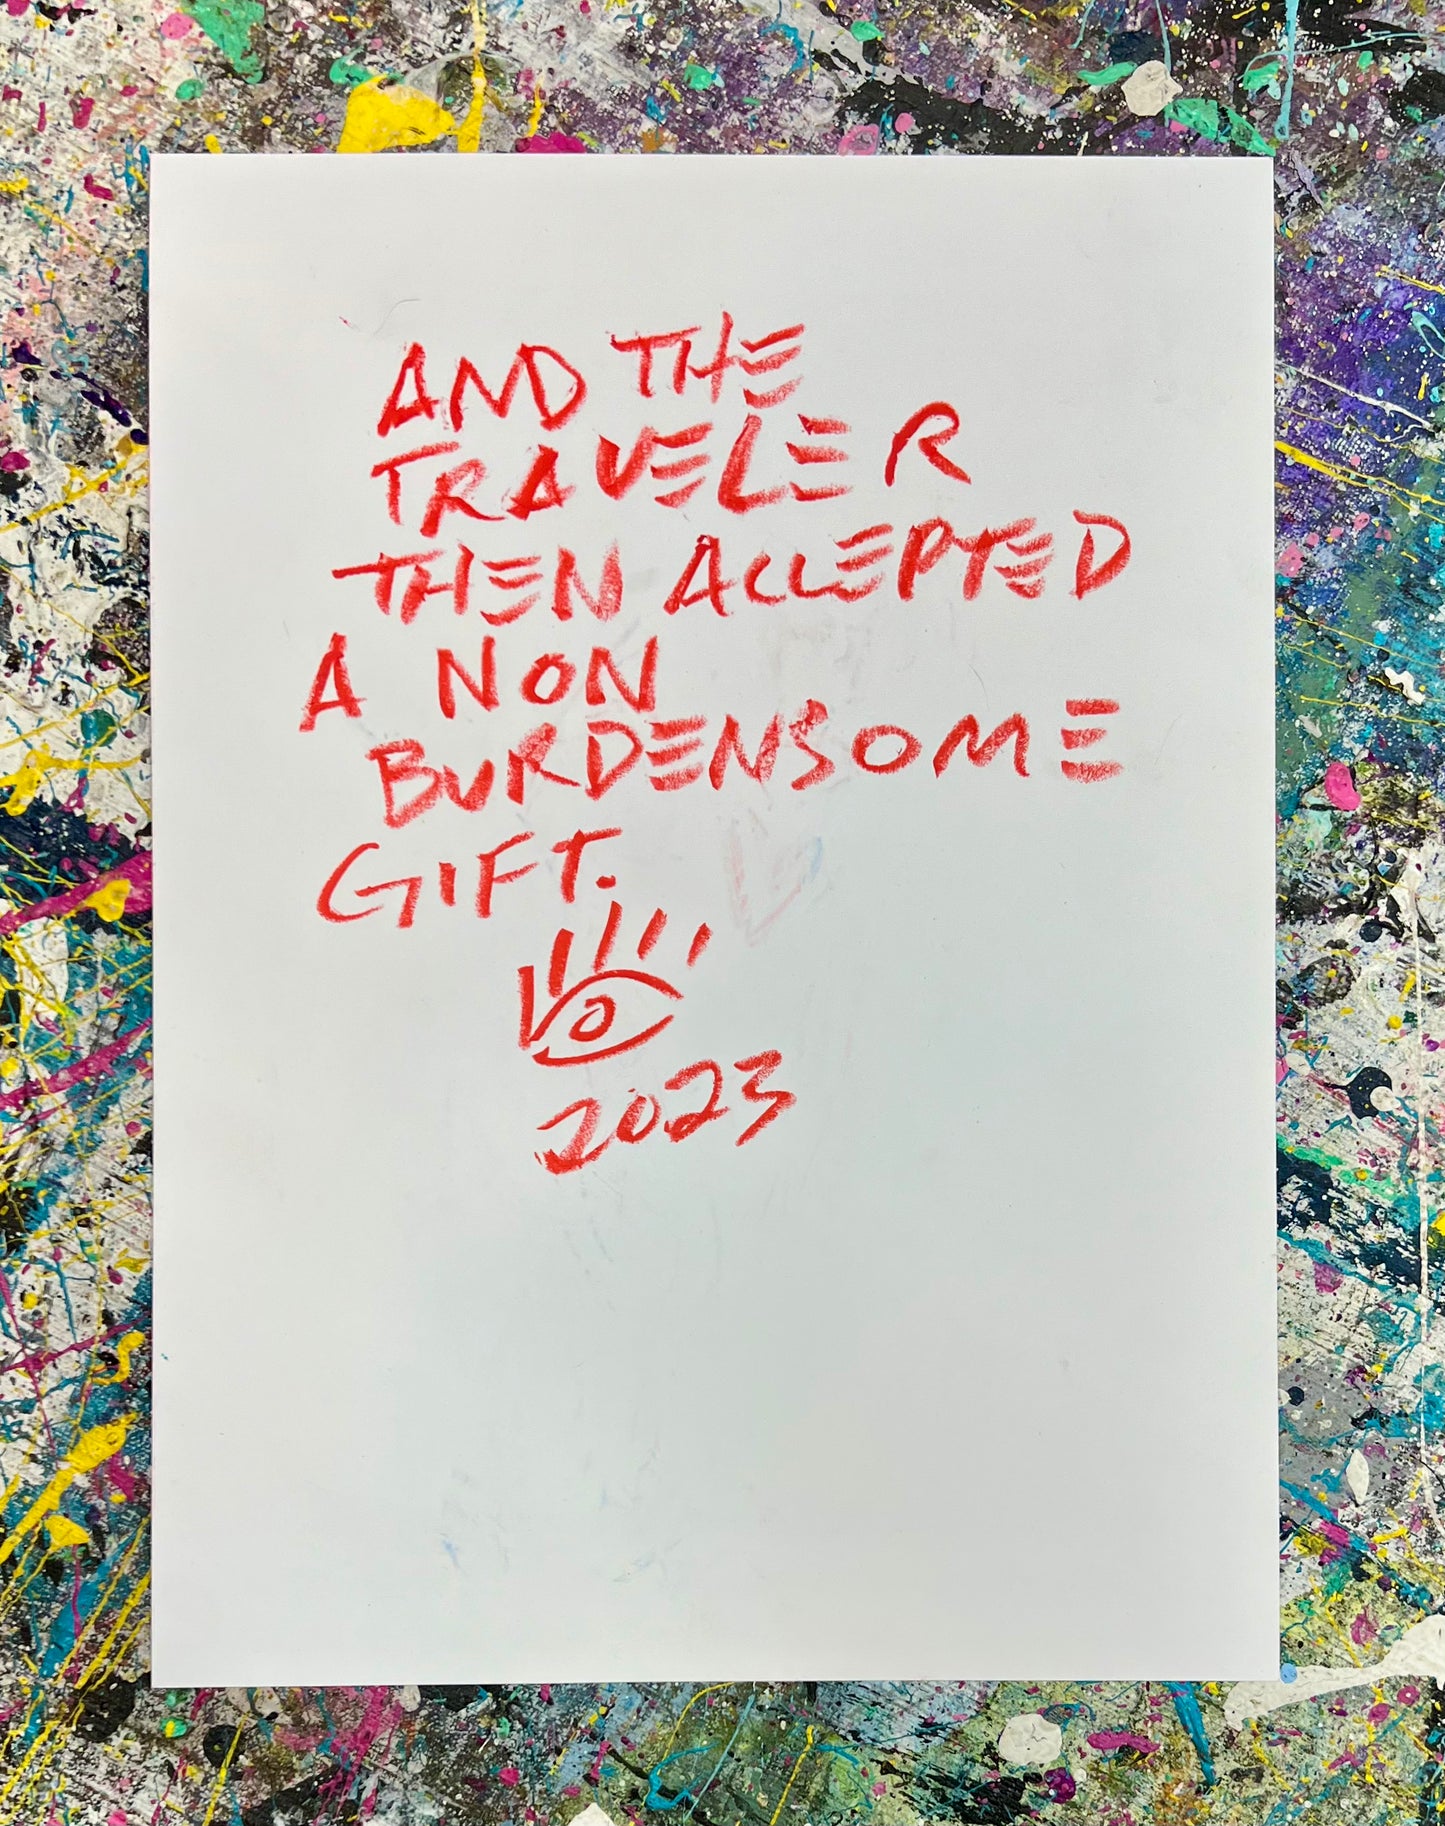 AND THE
TRAVELER
THEN ACCEPTED
A NON
BURDENSOME
GIFT.
2023